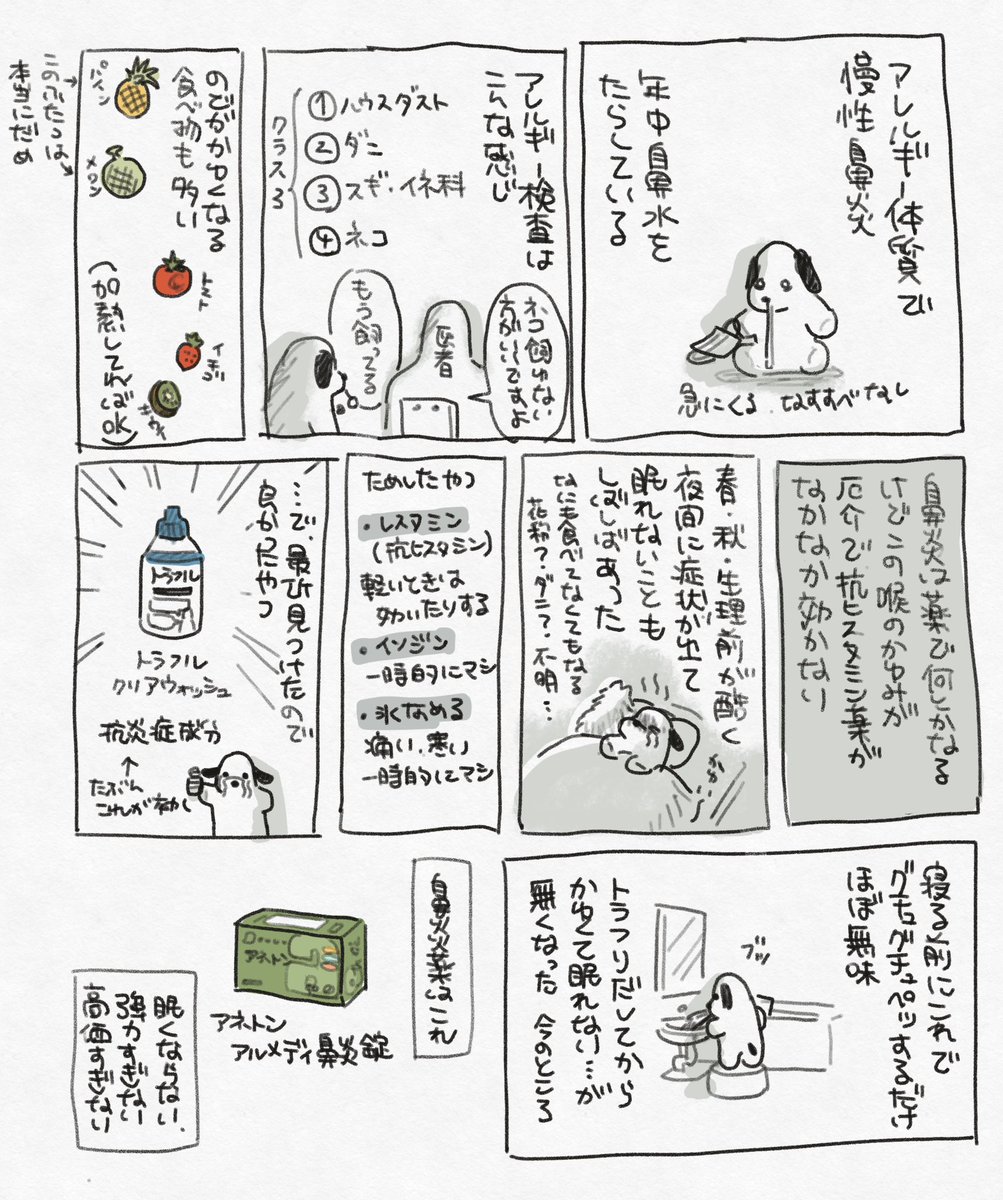 アレルギー体質で
慢性鼻炎
年中鼻水を
たらしている
急にくる なすすべなし
アレルギー検査は
こんな感じ
クラス3
①ハウスダスト
②ダニ
③スギ・イネ科
④ネコ
ネコ飼わない
方がいいですよ
医者
もう飼ってる
のどがかゆくなる
食べ物も多い
パイン
メロン
このふたつは
本当にだめ
トマト
イチゴ
キウイ
(加熱してればOK)
鼻炎は薬で何とかなる
けどこの喉のかゆみが
厄介で抗ヒスタミン薬が
なかなか効かない
春・秋・生理前が酷く
夜間に症状が出て
眠れないことも
しばしばあった
なにも食べてなくてもなる
花粉?ダニ?不明…
ためしたやつ
・レスタミン
(抗ヒスタミン)
軽いときは
効いたりする
・イソジン
一時的にマシ
・氷なめる
痛い、寒い
一時的にマシ
…で、最近見つけたので
良かったやつ
トラフル
トラフル
クリアウォッシュ
抗炎症成分
↑
たぶん
これが効く
寝る前にこれで
グチュグチュペッするだけ
ほぼ無味
ブツ
トラフりだしてから
かゆくて眠れない…が
無くなった 今のところ
鼻炎薬はこれ
アネトン
アネトン
アルメディ鼻炎錠
眠くならない、
強力すぎない
高価すぎない